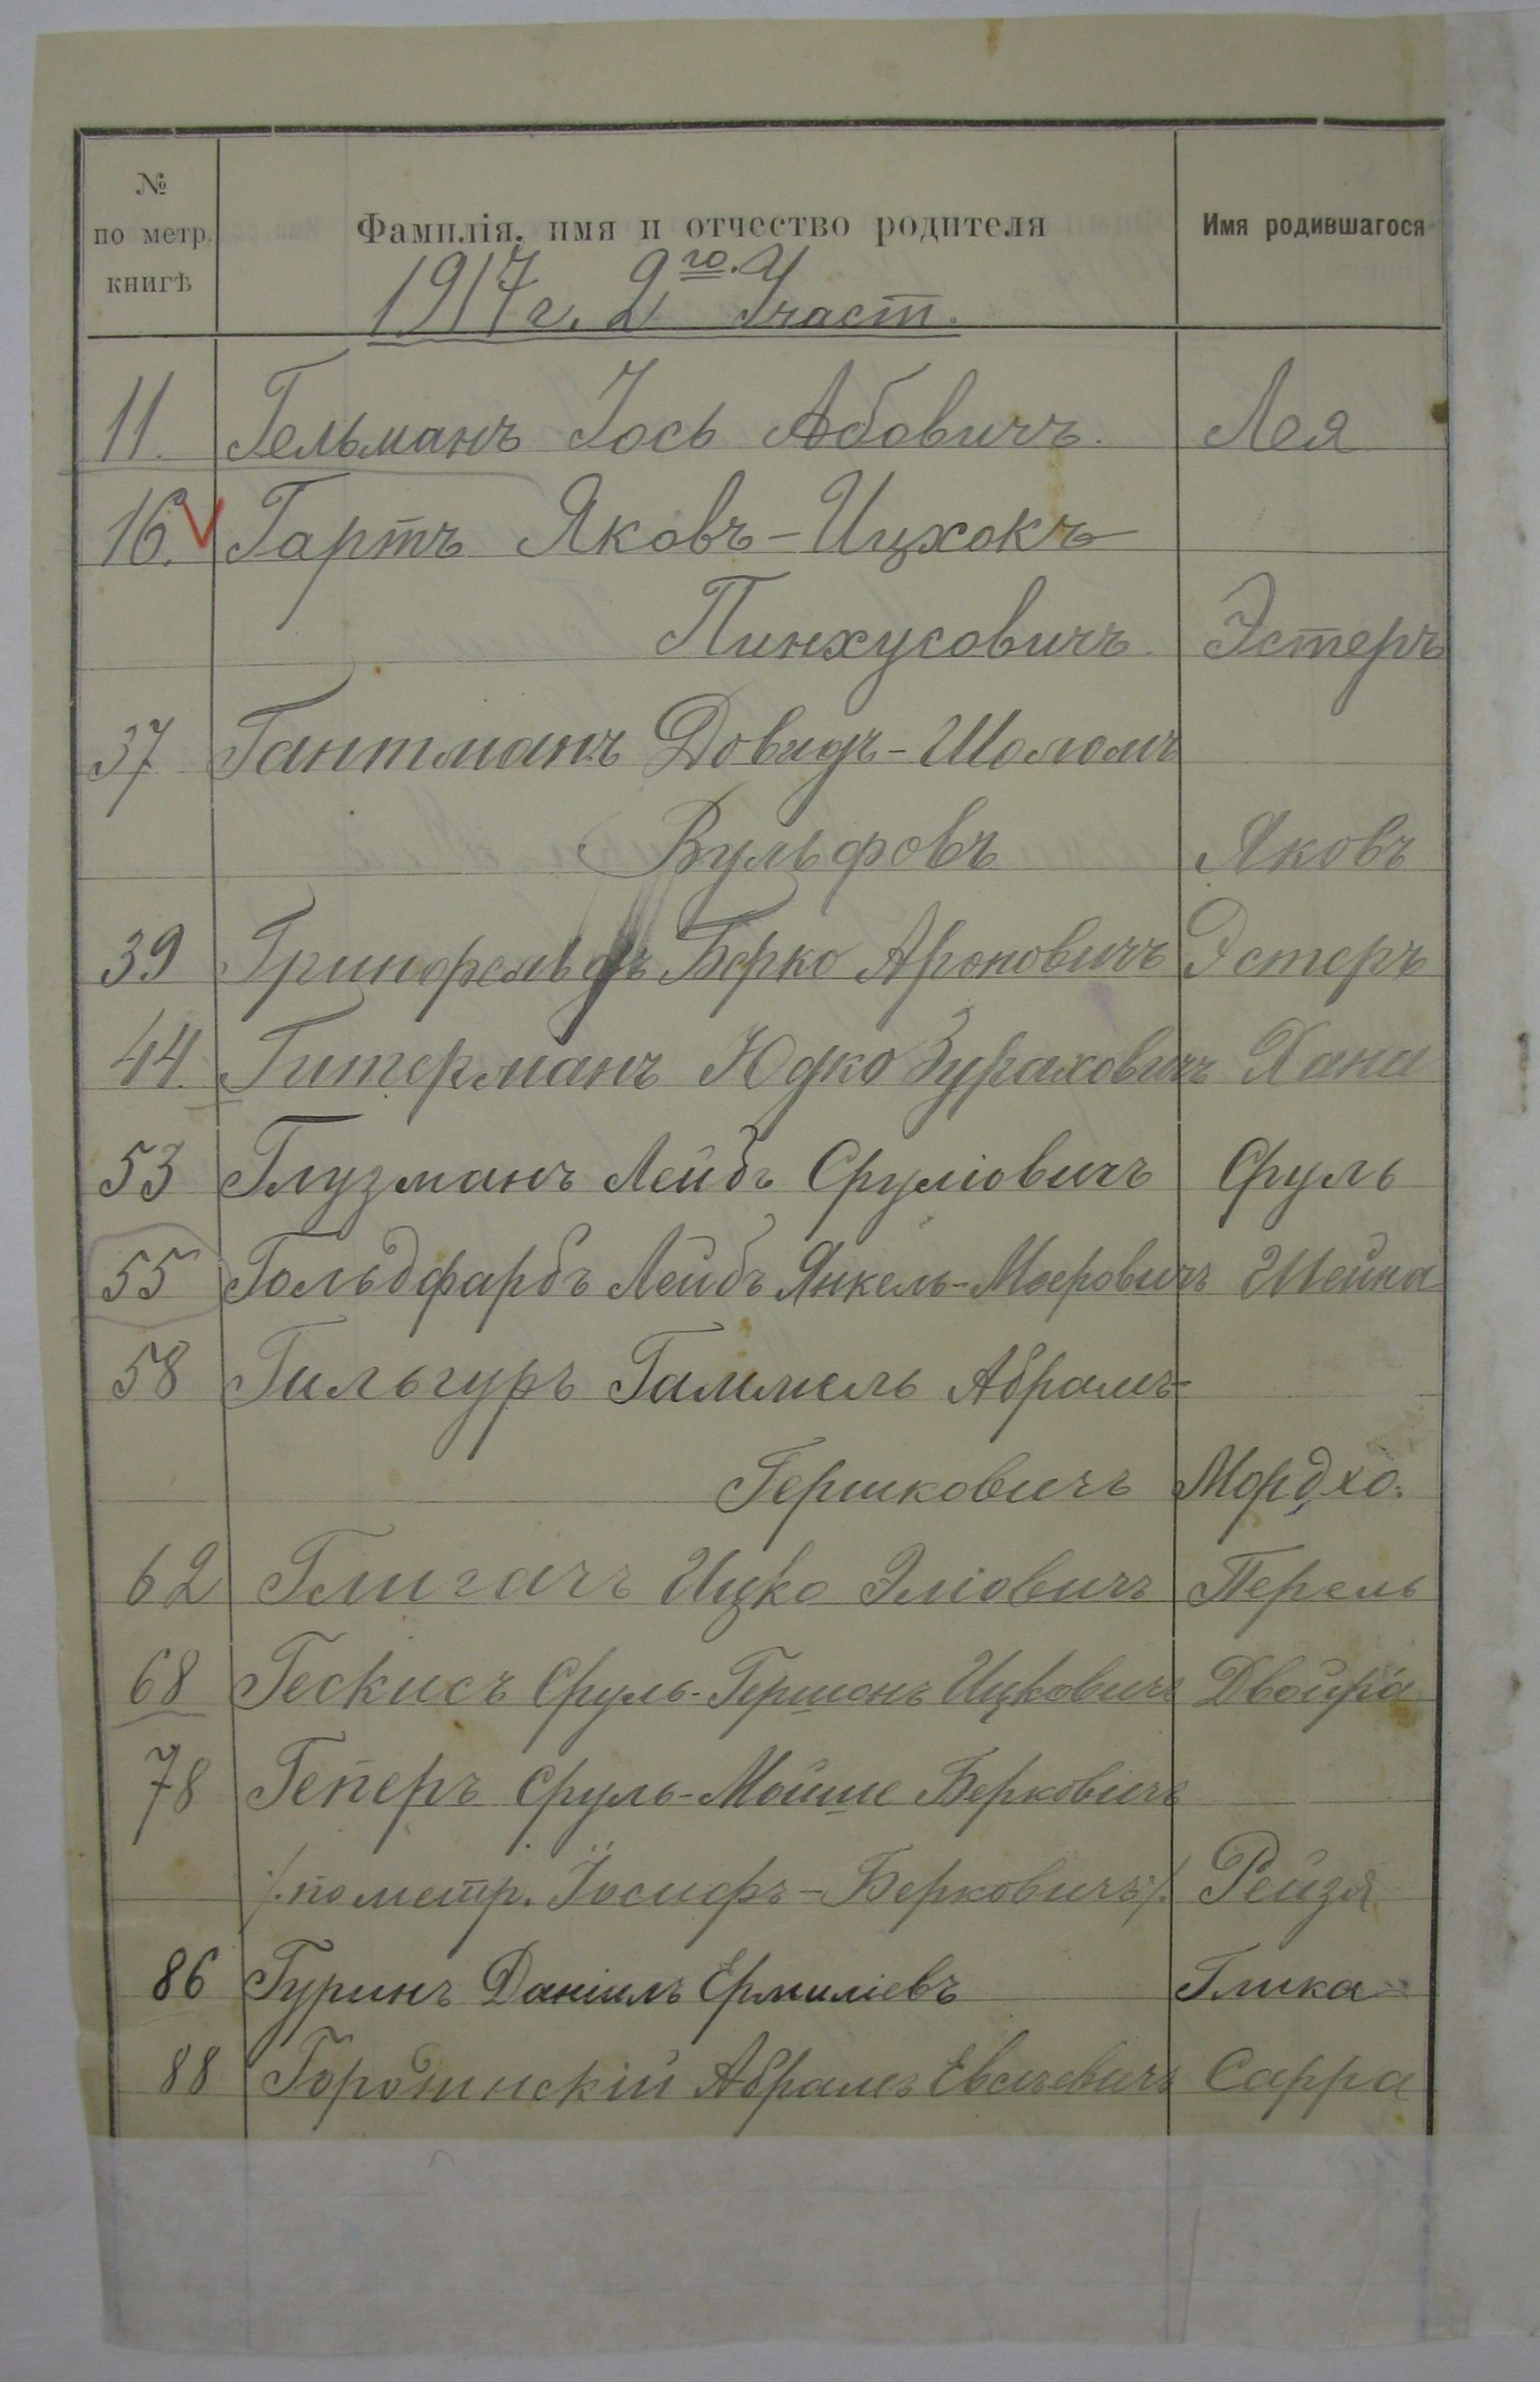 № по метр. книгѣ
Фамилія, имя и отчество родителя
Имя родившагося
1917 г. 2го. Участ.
11. Гельманъ Іось Абовичъ. Лея
16. V Гартъ Яковъ-Ицхокъ
Пинхусовичъ. Эстеръ
37 Гантманъ Довидъ-Шоломъ
Вульфовъ Яковъ
39 Гринфельдъ Берко Ароновичъ Эстеръ
44. Гитерманъ Юдко Зураховичъ Хана
53 Глузманъ Лейбъ Сруліовичъ Сруль
55 Гольдфарбъ Лейбъ Янкель-Мееровичъ Шейна
58 Гильгуръ Гаммель Абрамъ-
Гершковичъ Мордхо.
62 Глигачъ Ицко Эліовичъ Перель
68 Гескисъ Сруль-Гершонъ Ицковичъ Двойра
78 Геперъ Сруль-Мойше Берковичъ
/. по метр. Іосифъ-Берковичъ /. Рейзя
86 Гуринъ Даніилъ Ермиліевъ Глика
88 Городинскій Абрамъ Евсѣевичъ Сарра